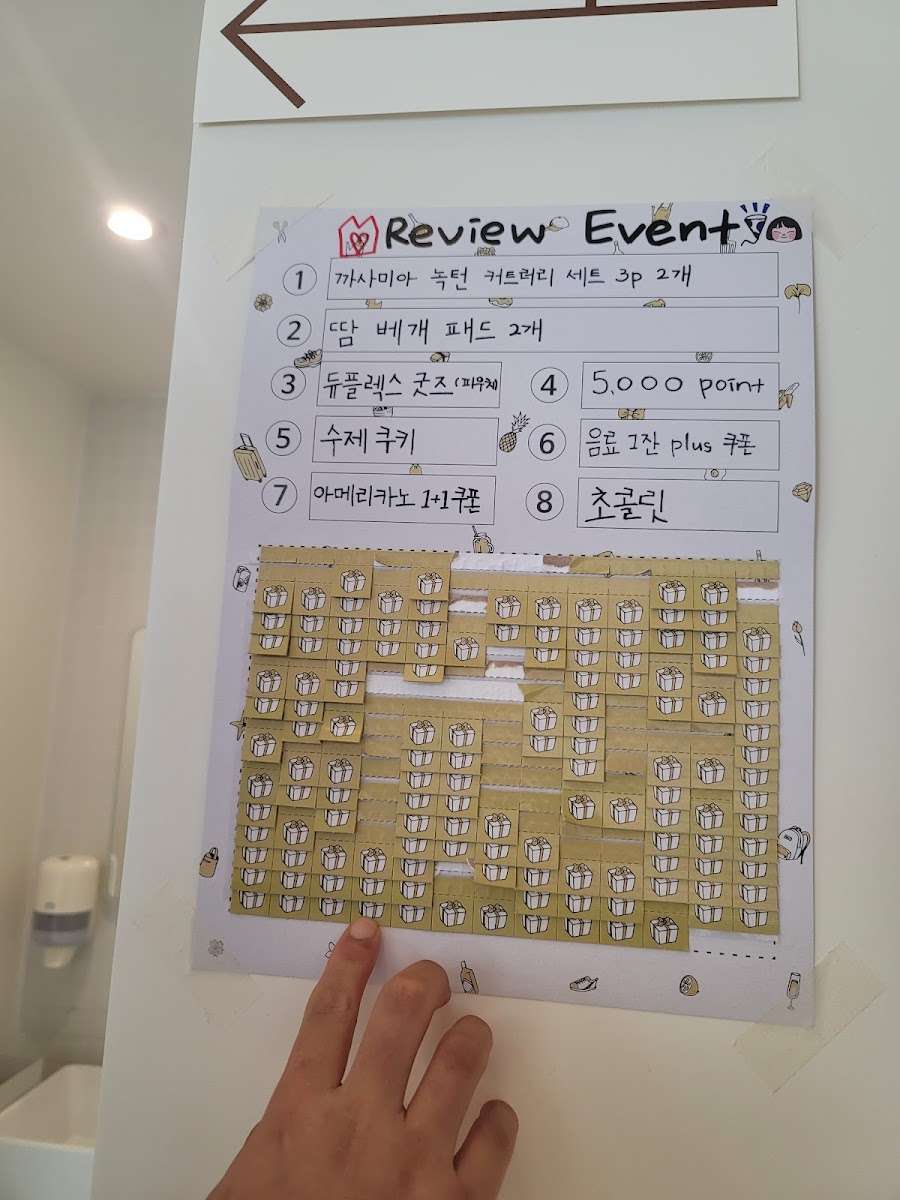 Review Event
① 까사미아 녹턴 커트러리 세트 3p 2개
② 땀 베개 패드 2개
③ 듀플렉스 굿즈(파우치)
④ 5,000 point
⑤ 수제 쿠키
⑥ 음료 1잔 plus 쿠폰
⑦ 아메리카노 1+1 쿠폰
⑧ 초콜릿